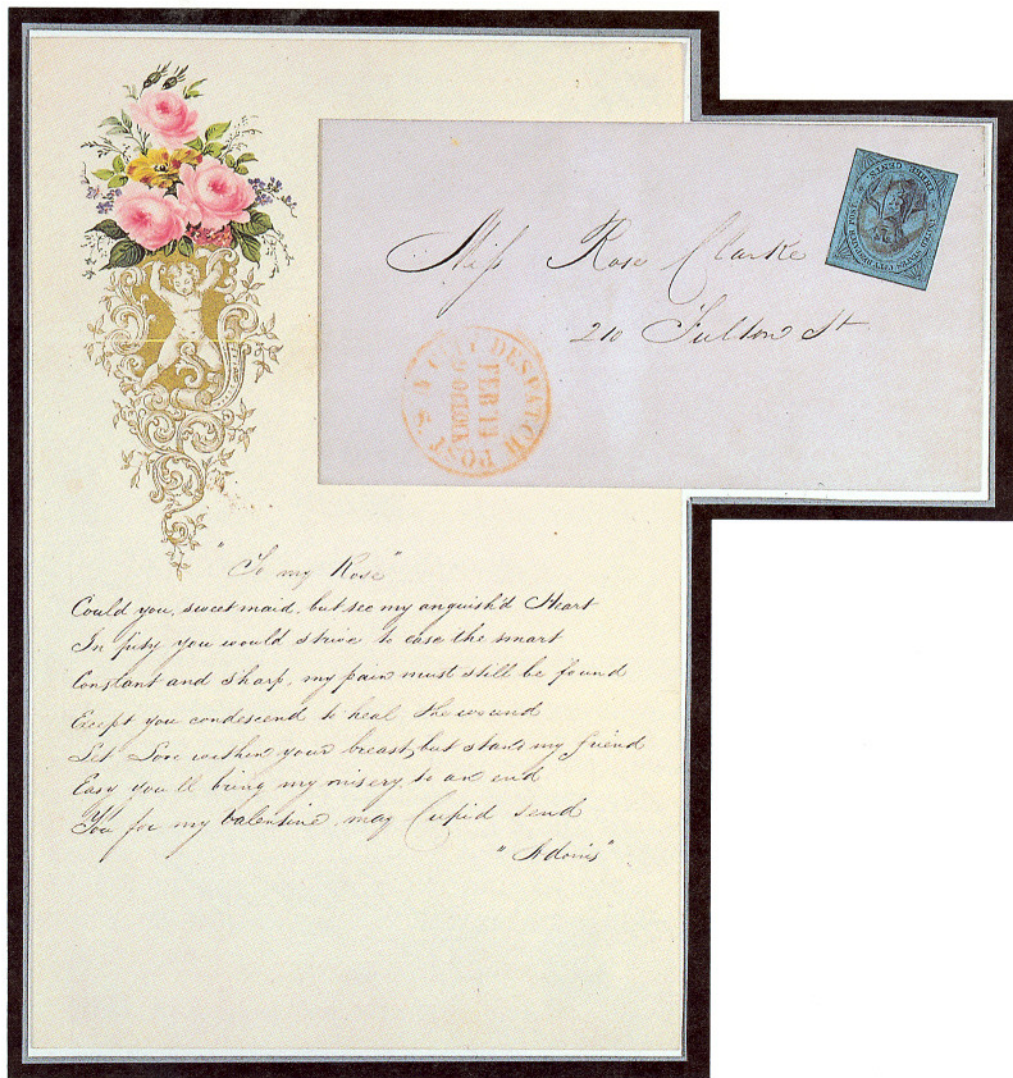 Miss Rose Clarke
210 Fulton St
THREE CENTS
UNITED STATES CITY DESPATCH POST
CITY DESPATCH POST
FEB 13
9 OCLOCK
"To my Rose"
Could you, sweet maid, but see my anguish'd Heart
In pity you would strive to ease the smart
Constant and sharp, my pain must still be found
Except you condescend to heal the wound
Let Love within your breast, but stand my friend
Easy you'll bring my misery, to an end
You for my Valentine, may Cupid send
"Adonis"